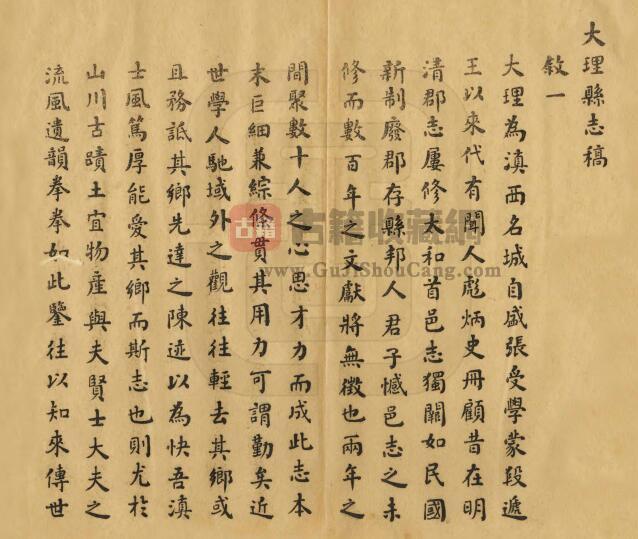 大理縣志稿
敘一
大理為滇西名城自盛張受學蒙段遞
王以來代有聞人彪炳史冊顧昔在明
清郡志屢修太和首邑志獨闕如民國
新制廢郡存縣邦人君子憾邑志之未
修而數百年之文獻將無徵也兩年之
間聚數十人之心思才力而成此志本
末巨細兼綜條貫其用力可謂勤矣近
世學人馳域外之觀往往輕去其鄉或
且務詆其鄉先達之陳迹以為快吾滇
士風篤厚能愛其鄉而斯志也則尤於
山川古蹟土宜物產與夫賢士大夫之
流風遺韻拳拳如此鑒往以知來傳世
古籍 古籍收藏網
www.GuJiShouCang.com